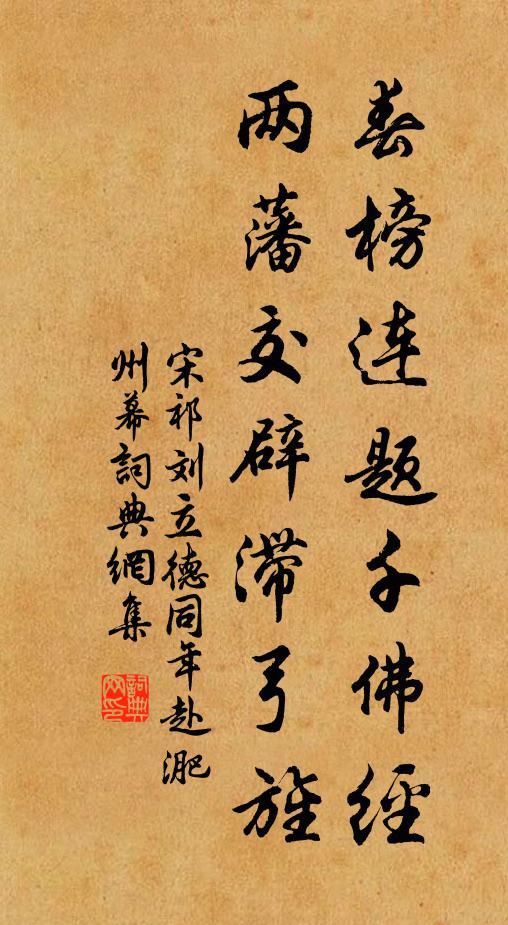 春榜连题千佛经
两藩交辟滞弓旌
宋祁刘立德同年赴淝
州幕詞典網集
詞典網印